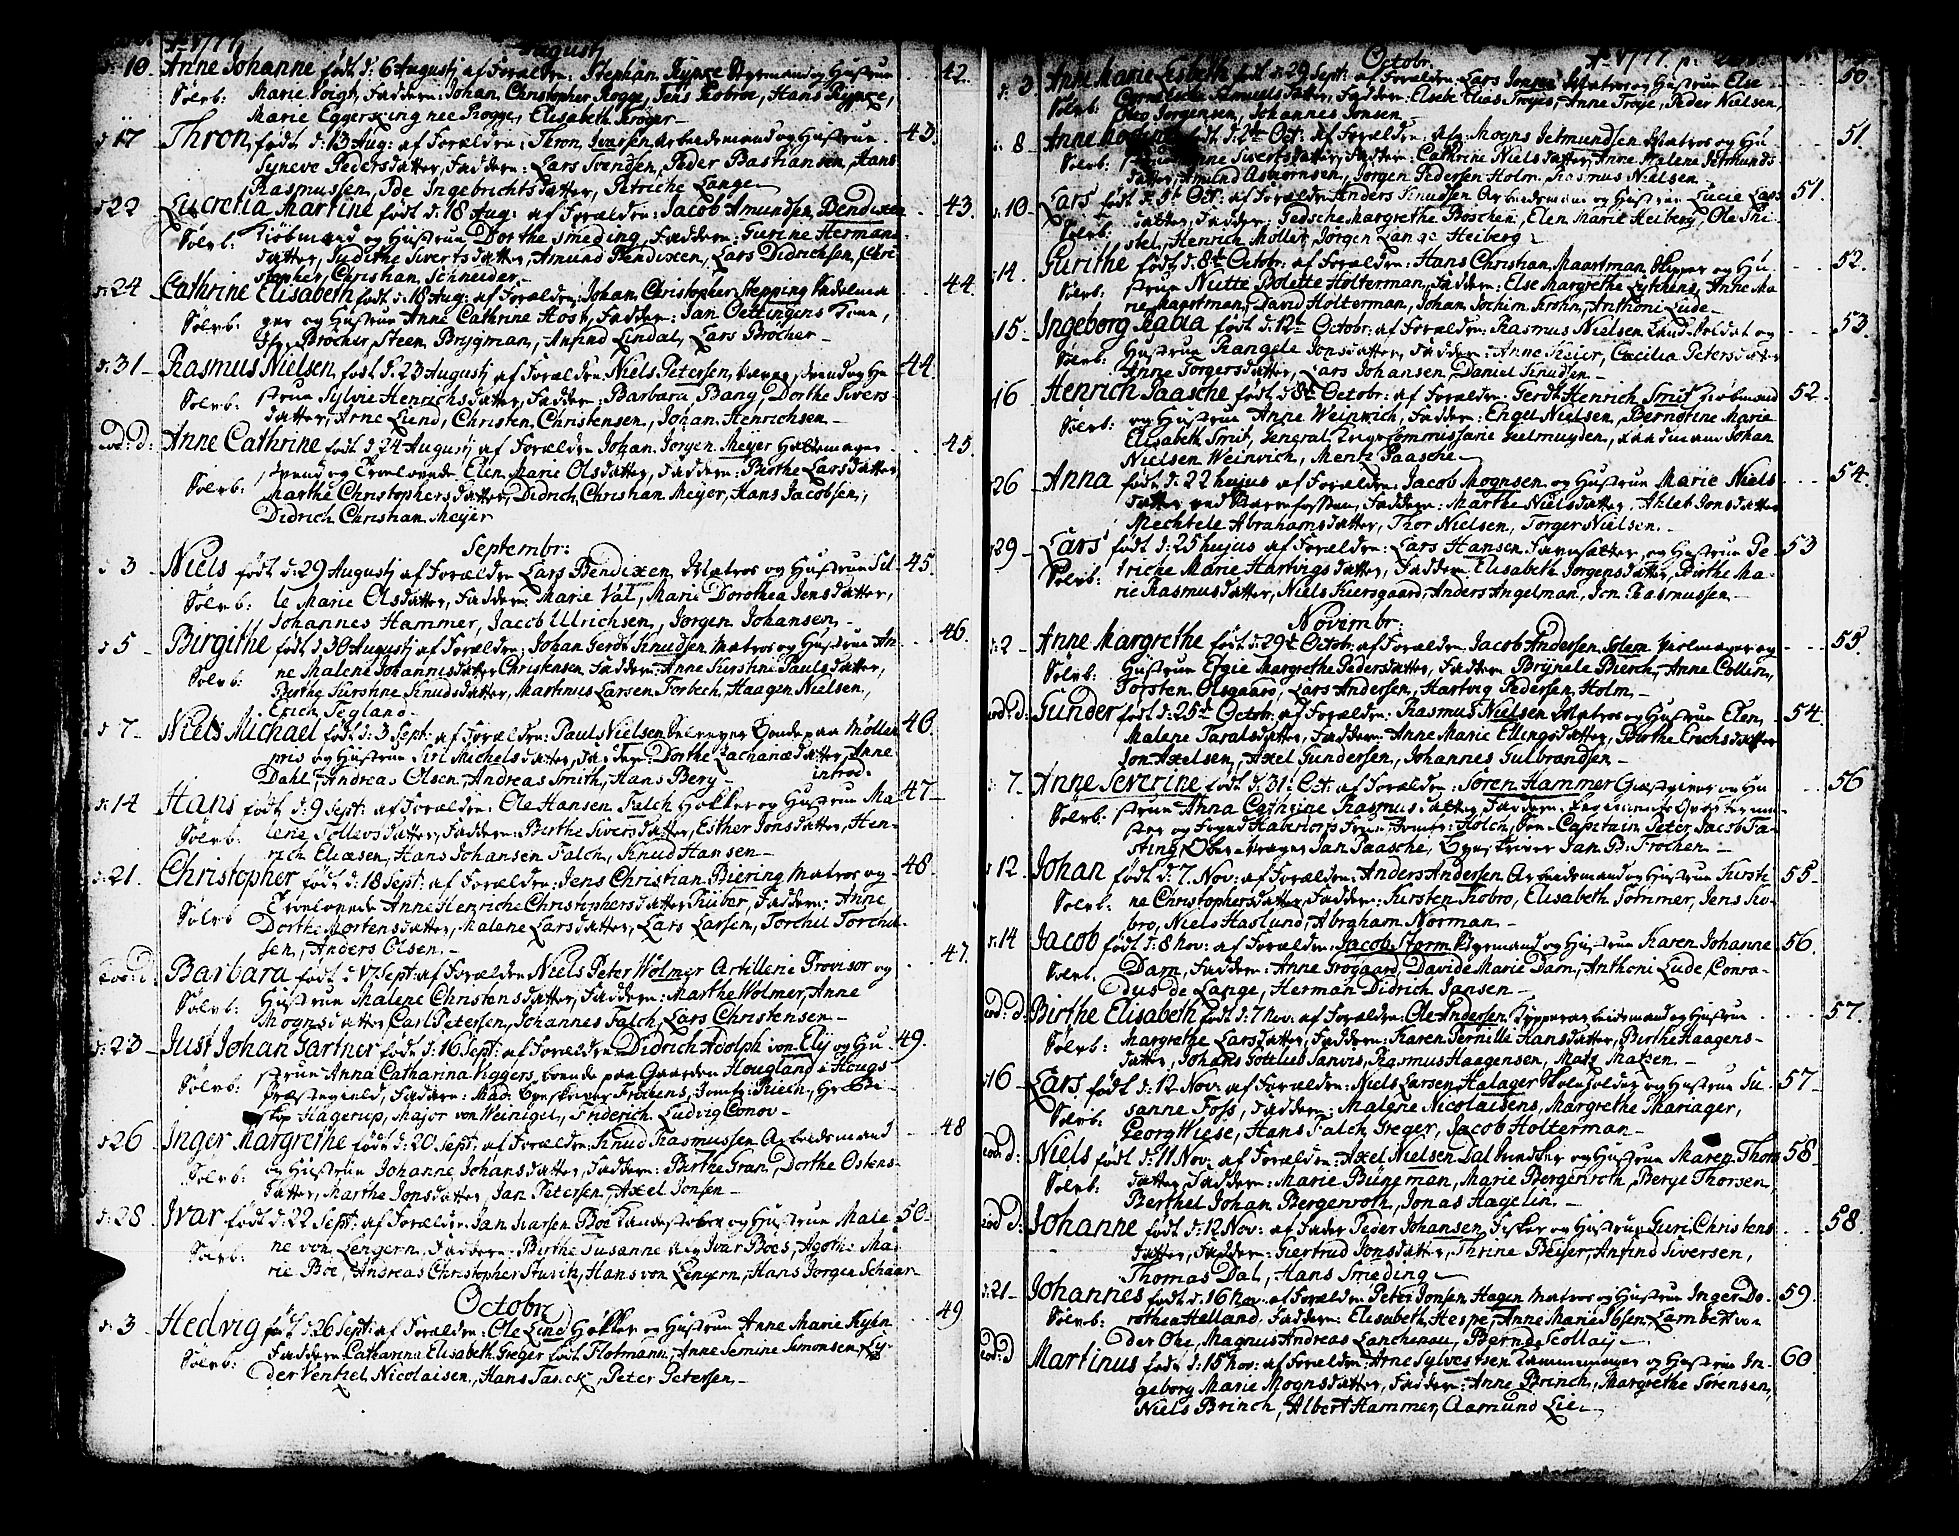 Aº 1777
Augustj
d: 10. Anne Johanne født d: 6 Augustj af Forældre: Stephan Rypke Styrmand og Hustrue 42.
Sølvb: Marie Voigt, Faddere: Johan Christopher Rogge, Jens Fiobroe, Hans Rypke,
Marie Eggerking nee Rogge, Elisabeth Krøger
d 17 Thron, født d: 13 Aug: af Forældre: Thron Ivarsen Arbeidsmand og Hustrue 43.
Syneve Pedersdatter, Faddere: Lars Svendsen, Peder Bastiansen, Hans
Rasmussen, Ide Ingebrichtsdatter, Petriche Lange
d 22 Lucretia Martine født d: 18 Aug: af Forældre: Jacob Amundsen Bendixen 43.
Sølvb: Kiøbmand og Hustrue Dorthe Smeding, Faddere: Gurine Hermans
datter, Judithe Sivertsdatter, Amund Bendixen, Lars Didrichsen, Chri
stopher Christian Schneider
d: 24 Cathrine Elisabeth født d: 18 Aug: af Forældre: Johan Christopher Stepping Sadelma 44.
Sølvb: ger og Hustrue Anne Cathrine Host, Faddere: Jan Oettingens Kone,
Brocher, Steen Brygman, Anfind Lindal, Lars Brocher
d: 31 Rasmus Nielsen født d: 23 Augustj af Forældre: Niels Petersen, og Hu 44.
Sølvb: strue Sylvie Henrichsdatter, Faddere: Barbara Bang, Dorthe Sivers-
datter, Arne Lund, Christen Christensen, Johan Henrichsen
eod: d: Anne Cathrine født d: 24 Augustj af Forældre Johan Jørgen Meyer 45.
Sølvb: Svend og Troelovede Elen Marie Olsdatter, Faddere: Birthe Larsdatter,
Marthe Christophersdatter, Didrich Christian Meyer, Hans Jacobsen,
Didrich Christian Meyer
Septembr:
d 3 Niels født d: 29 Augustj af Forældre Lars Bendixen Matros og Hustrue Sil 45.
Sølvb: le Marie Olsdatter, Faddere: Marie Val, Marie Dorothea Jensdatter,
Johannes Hammer, Jacob Ulrichsen, Jørgen Johansen
d 5 Birgithe født d 30 Augustj af Forældre: Johan Gerdt Knudsen Matros og Hustrue An 46.
Sølvb: ne Malene Johannisdatter Christensen Faddere: Anne Kirstine Paulsdatter,
Birthe Kirstine Knudsdatter, Martinus Larsen Forbech, Haagen Nielsen,
Erich Tegland
d 7 Niels Michael født d: 3 Sept: af Forældre: Paul Nielsen boende paa Møllen 46.
priis og Hustrue Siri Michelsdatter, Faddere: Dorthe Zachariædatter, Anne
Dahl, Andreas Olsen, Andreas Smith, Hans Berg introd:
d: 14 Hans født d: 9 Sept: af Forældre: Ole Hansen Falch Høkker og Hustrue Ma 47
Sølvb: lene Tollevsdatter, Faddere: Berthe Siversdatter, Esther Jonsdatter, Hen-
rich Eliæsen, Hans Johansen Falch, Knud Hansen
d: 21. Christopher født d: 18 Sept: af Forældre: Jens Christian Biering Matros og 48
Sølvb Troelovede Anne Henriche Christophersdatter Küber, Faddere: Anne
Dorthe Mortensdatter, Malene Larsdatter, Lars Larsen, Torchil Torchil
sen, Anders Olsen
eod: d: Barbara født d 17 Sept: af Forældre Niels Peter Wolmer Artillerie Provisor og 47.
Sølvb: Hustrue Malene Christensdatter, Faddere: Marthe Wolmer, Anne
Mognsdatter, Carl Petersen, Johannes Falch, Lars Christensen
d: 23 Just Johan Gartner født d: 16 Sept: af Forældre Didrich Adolph von Elÿ og Hu 49.
Sølvb: strue Anna Catharina Viggers, boende paa Gaarden Hougland i Hougs
Præstegield, Faddere: Mad: Frochens, Jomfr: Buech,
skop Hagerup, Major von Weinigel, Friderich Ludvig Conow
d 26 Inger Margrethe født d: 20 Sept: af Forældre: Knud Rasmussen Arbeidsmand 48
Sølvb: og Hustrue Johanne Johansdatter, Faddere: Birthe Gran, Dorthe Ostens-
datter, Marthe Jonsdatter, Jan Petersen, Axel Jonsen
d: 28 Ivar født d: 22 Sept: af Forældre: Jan Ivarsen Boe Kandestøber og Hustrue Male 50
Sølvb: ne von Lengern, Faddere: Birthe Susanne Ivar Boes, Agathe Ma-
rie Boe, Andreas Christopher Sturitz, Hans von Lengern, Hans Jørgen Schaar
Octobr:
d: 3 Hedvig født d: 26 Sept: af Forældre: Ole Lind Høkker og Hustrue Anne Marie Kyhn 49
Sølvb: Faddere: Catharina Elisabeth Greger født Flotmann, Anne Semine Simonsen, Ly-
der Ventzel Nicolaisen, Hans Tasck, Peter Petersen
Octobr. Aº 1777. p:
d: 3 Anne Marie Lisbeth født d: 29 Sept: af Forældre: Lars Matros og Hustrue Else 50
Sølvb: Cornelsche Samuelsdatter, Faddere: Elsebe Elias Troyes, Anne Troye, Peder Nielsen,
Ole Jørgensen, Johannes Jonsen
d. 8 Anne født d: 2de Oct: af Forældre: Mogns Jetmundsen Matros og Hu 51
Sølvb: strue Anne Sivertsdatter, Faddere: Cathrine Nielsdatter, Anne Malene Jetmunds-
datter, Amund Asbiørnsen, Jørgen Pedersen Holm, Rasmus Nielsen
d. 10 Lars født d: 9 Oct: af Forældre Anders Knudsen Arbeidsmand og Hustrue Lucie Lars 51.
Sølvb: datter, Faddere: Gedsche Margrethe Böschen, Elen Marie Heiberg, Ole Thi-
stel, Henrich Møller, Jørgen Lange Heiberg
d 14. Gurithe født d: 8de Octobr: af Forældre: Hans Christian Maartman Skipper og Hu 52.
Sølvb: strue Nutte Bolette Holterman, Faddere: Else Margrethe Lytkens, Anne Ma-
rie Maartman, David Holterman, Johan Jochim Krohn, Anthoni Lude
15 Ingeborg Rabia født d: 12te Octobr: af Forældre: Rasmus Nielsen Land-Soldat og 53.
Sølvb: Hustrue Rangele Jonsdatter, Faddere: Anne Heier, Cæcilia Petersdatter
Anne Torgersdatter, Lars Johansen, Daniel Knudsen
16 Henrich Paasche født d: 8de Octobr: af Forældre: Gerdt Henrich Smit Kiøbmand 52.
Sølvb: og Hustrue Anne Weinwich, Faddere: Engel Nielsen, Bernotine Marie
Elisabeth Smit, General Krigscommissaire Geelmuyden, Raadmann Johan
Nielsen Weinvich, Mentz Paasche
d 26 Anna født d: 22 hujus af Forældre: Jacob Mognsen og Hustrue Marie Niels 54.
datter ved Steenfossen, Faddere: Marthe Nielsdatter, Ahlet Jonsdatter
Mechtele Abrahamsdatter, Thor Nielsen, Torger Nielsen
d 29 Lars født d: 25 hujus af Forældre: Lars Hansen og Hustrue Pe- 53
Sølvb: triche Marie Hartvigsdatter, Faddere Elisabeth Jørgensdatter, Birthe Ma-
rie Rasmusdatter, Niels Kiersgaard, Anders Angelman, Jon Rasmussen
Novembr:
d: 2 Anne Margrethe født d: 29de Octobr. af Forældre Jacob Andersen Holem og 55.
Sølvb: Hustrue Efgie Margrethe Pedersdatter, Faddere Brynele Bierch, Anne Collin,
Torsten Olsgaard, Lars Andersen, Hartvig Pedersen Holm
eod: d: Gunder født d: 25de Octobr. af Forældre: Rasmus Nielsen Matros og Hustrue Elen 54.
Malene Taralsdatter, Faddere: Anne Marie Ellingsdatter, Birthe Erichsdatter
Jon Axelsen, Axel Gundersen, Johannes Gulbrandsen
d: 7. Anne Severine født d: 31 Oct: af Forældre: Søren Hammer Giæstgiver og Hu 56
Sølvb: strue Anna Cathrine Rasmusdatter, Faddere: Regiments Qvartermester
og Haberdorfs Frue, Jomfr: Holch, Capitain Peter Jacob Fa-
sting, Jan Paasche, Byeskriver Jan B: Frochen
d 12 Johan født d: 7 Nov: af Forældre: Anders Andersen Arbeidsmand og Hustrue Kirsti- 55
Sølvb: ne Christophersdatter, Faddere: Kirsten Fiobro, Elisabeth Tommer, Jens Fio-
bro, Niels Haslund, Abraham Norman
d: 14 Jacob født d: 8 Nov: af Forældre: Jacob Storm Styrmand og Hustrue Karen Johanne 56.
Sølvb. Dam, Faddere: Anne Grogaard, Davide Marie Dam, Anthoni Lude, Conra-
dus de Lange, Herman Didrich Jansen
eod: d: Birthe Elisabeth født d: 7 Nov: af Forældre: Ole Andersen Kypper arbeidsmand og Hustrue 57.
Sølvb: Margrethe Larsdatter, Faddere: Karen Pernille Hansdatter, Birthe Haagens-
datter, Johans Gottlieb Jarvis, Rasmus Haagensen, Mats Matsen
d 16 Lars født d: 12 Nov: af Forældre: Niels Larsen Halager Skoleholder og Hustrue Su- 57
Sølvb: sanne Foss, Faddere: Malene Nicolaisens, Margrethe Mariager,
Georg Wiese, Hans Falch Greger, Jacob Holterman
eod: d: Niels født d: 11 Nov: af Forældre: Axel Nielsen Dal Snidker og Hustrue Maren Thom 58
Sølvb: datter, Faddere: Marie Büneman, Marie Bergenroth, Berge Thorsen,
Berthel Johan Bergenroth, Jonas Hagelin
eod d: Johanne født d: 12 Nov: af Fader Peder Johansen Fisker og Hustrue Guri Christens 58.
datter, Faddere: Giertrud Jonsdatter, Thrine Beyer, Anfind Siversen,
Thomas Dal, Hans Smeding
d. 21 Johannes født d: 16 Nov: af Forældre: Peter Jonsen Hagen Matros og Hustrue Inger Do- 59.
Sølvb: rothea Helland. Faddere: Elisabeth Hespe, Anne Marie Ibsen, Lambert von
der Ohe, Magnus Andreas Lanchenau, Bernt Scollaÿ
eod: d Martinus født d: 15 Nov: af Forældre: Arne Sylvestsen og Hustrue In- 60
geborg Marie Mognsdatter, Faddere: Anne Brinch, Margrethe Sørensen,
Niels Brinch, Albert Hammer, Aamund Lie